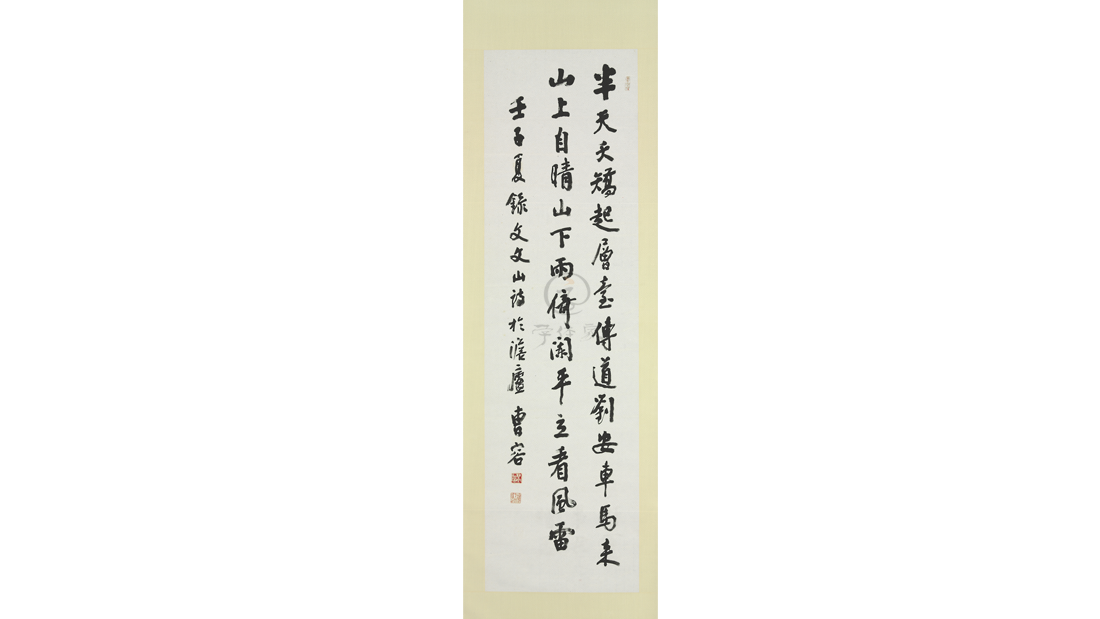 半天夭矯起層臺傳道劉安車馬來
山上自晴山下雨倚闌平立看風雷
壬子夏錄文文山詩於澹廬 曹容